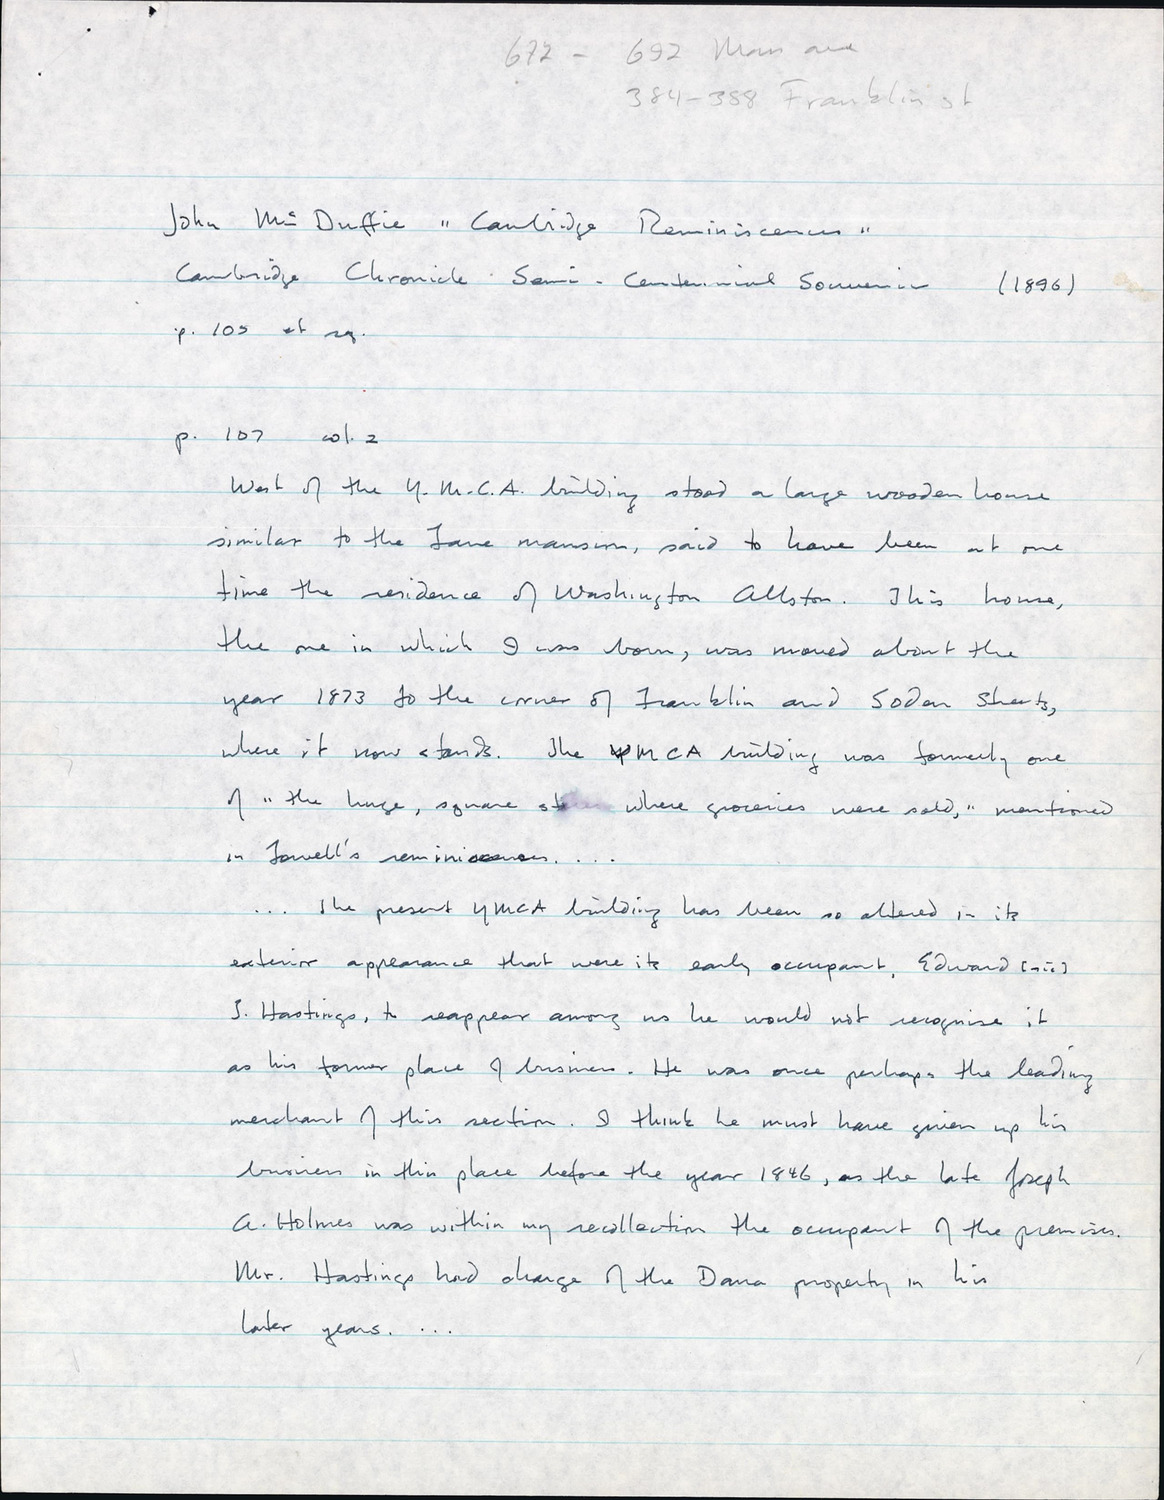 672 - 692 Mass ave
384-388 Franklin st
John Mc Duffie "Cambridge Reminiscences"
Cambridge Chronicle Semi-Centennial Souvenir (1896)
p. 105 et sq.
p. 107 col. 2
West of the Y.M.C.A. building stood a large wooden house
similar to the Lane mansion, said to have been at one
time the residence of Washington Allston. This house,
the one in which I was born, was moved about the
year 1873 to the corner of Franklin and Soden Streets,
where it now stands. The YMCA building was formerly one
of "the huge, square stores where groceries were sold," mentioned
in Lowell's reminiscences. ...
... The present YMCA building has been so altered in its
exterior appearance that were its early occupant, Edward [sic]
S. Hastings, to reappear among us he would not recognise it
as his former place of business. He was once perhaps the leading
merchant of this section. I think he must have given up his
business in this place before the year 1846, as the late Joseph
A. Holmes was within my recollection the occupant of the premises.
Mr. Hastings had charge of the Dana property in his
later years. ...